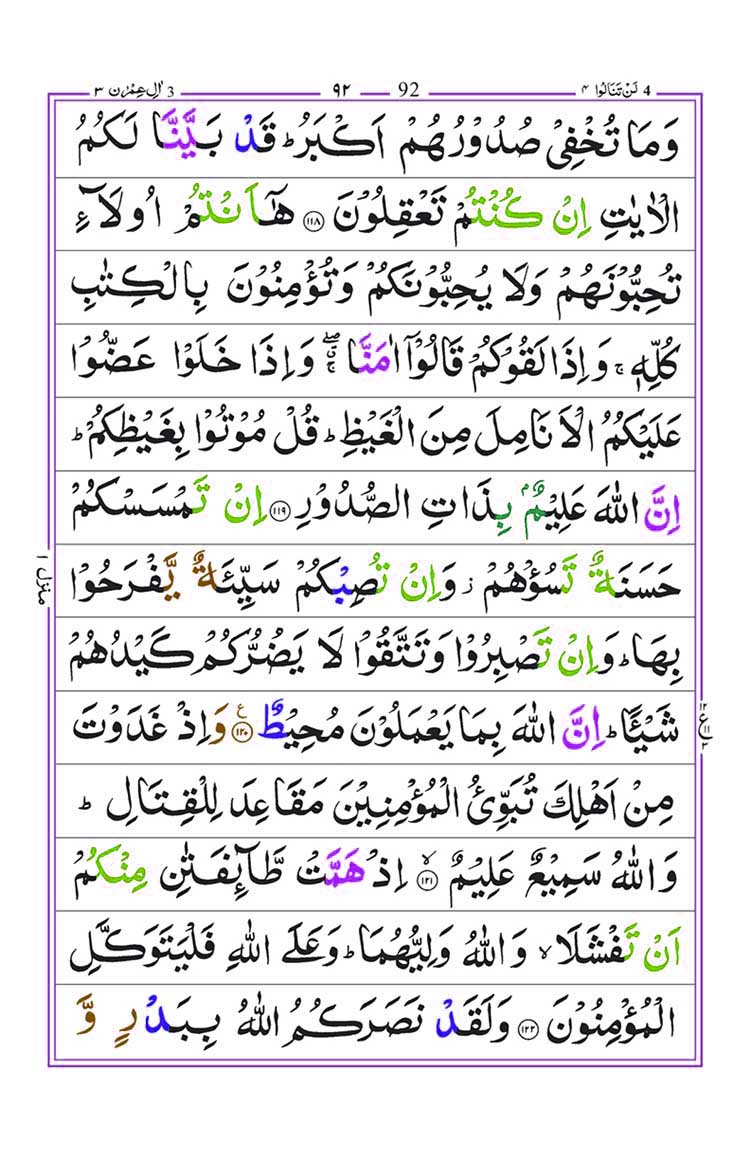 4 لَنْ تَنَالُوا ۴ 92 ۹۲ 3 اٰلِ عِمْرٰن ۳
وَمَا تُخْفِيْ صُدُوْرُهُمْ اَكْبَرُ ؕ قَدْ بَيَّنَّا لَكُمُ
الْاٰيٰتِ اِنْ كُنْتُمْ تَعْقِلُوْنَ ﴿۱۱۸﴾ هٰۤاَنْتُمْ اُولَآءِ
تُحِبُّوْنَهُمْ وَلَا يُحِبُّوْنَكُمْ وَتُؤْمِنُوْنَ بِالْكِتٰبِ
كُلِّهٖ ۚ وَاِذَا لَقُوْكُمْ قَالُوْۤا اٰمَنَّا ۖۚ وَاِذَا خَلَوْا عَضُّوْا
عَلَيْكُمُ الْاَنَامِلَ مِنَ الْغَيْظِ ؕ قُلْ مُوْتُوْا بِغَيْظِكُمْ ؕ
اِنَّ اللّٰهَ عَلِيْمٌۢ بِذَاتِ الصُّدُوْرِ ﴿۱۱۹﴾ اِنْ تَمْسَسْكُمْ
حَسَنَةٌ تَسُؤْهُمْ ؗ وَاِنْ تُصِبْكُمْ سَيِّئَةٌ يَّفْرَحُوْا
بِهَا ؕ وَاِنْ تَصْبِرُوْا وَتَتَّقُوْا لَا يَضُرُّكُمْ كَيْدُهُمْ
شَيْـًٔا ؕ اِنَّ اللّٰهَ بِمَا يَعْمَلُوْنَ مُحِيْطٌ ﴿۱۲۰﴾ ع وَاِذْ غَدَوْتَ
مِنْ اَهْلِكَ تُبَوِّئُ الْمُؤْمِنِيْنَ مَقَاعِدَ لِلْقِتَالِ ؕ
وَاللّٰهُ سَمِيْعٌ عَلِيْمٌ ﴿۱۲۱﴾ ۙ اِذْ هَمَّتْ طَّآئِفَتٰنِ مِنْكُمْ
اَنْ تَفْشَلَا ۙ وَاللّٰهُ وَلِيُّهُمَا ؕ وَعَلَى اللّٰهِ فَلْيَتَوَكَّلِ
الْمُؤْمِنُوْنَ ﴿۱۲۲﴾ وَلَقَدْ نَصَرَكُمُ اللّٰهُ بِبَدْرٍ وَّ
منزل ۱